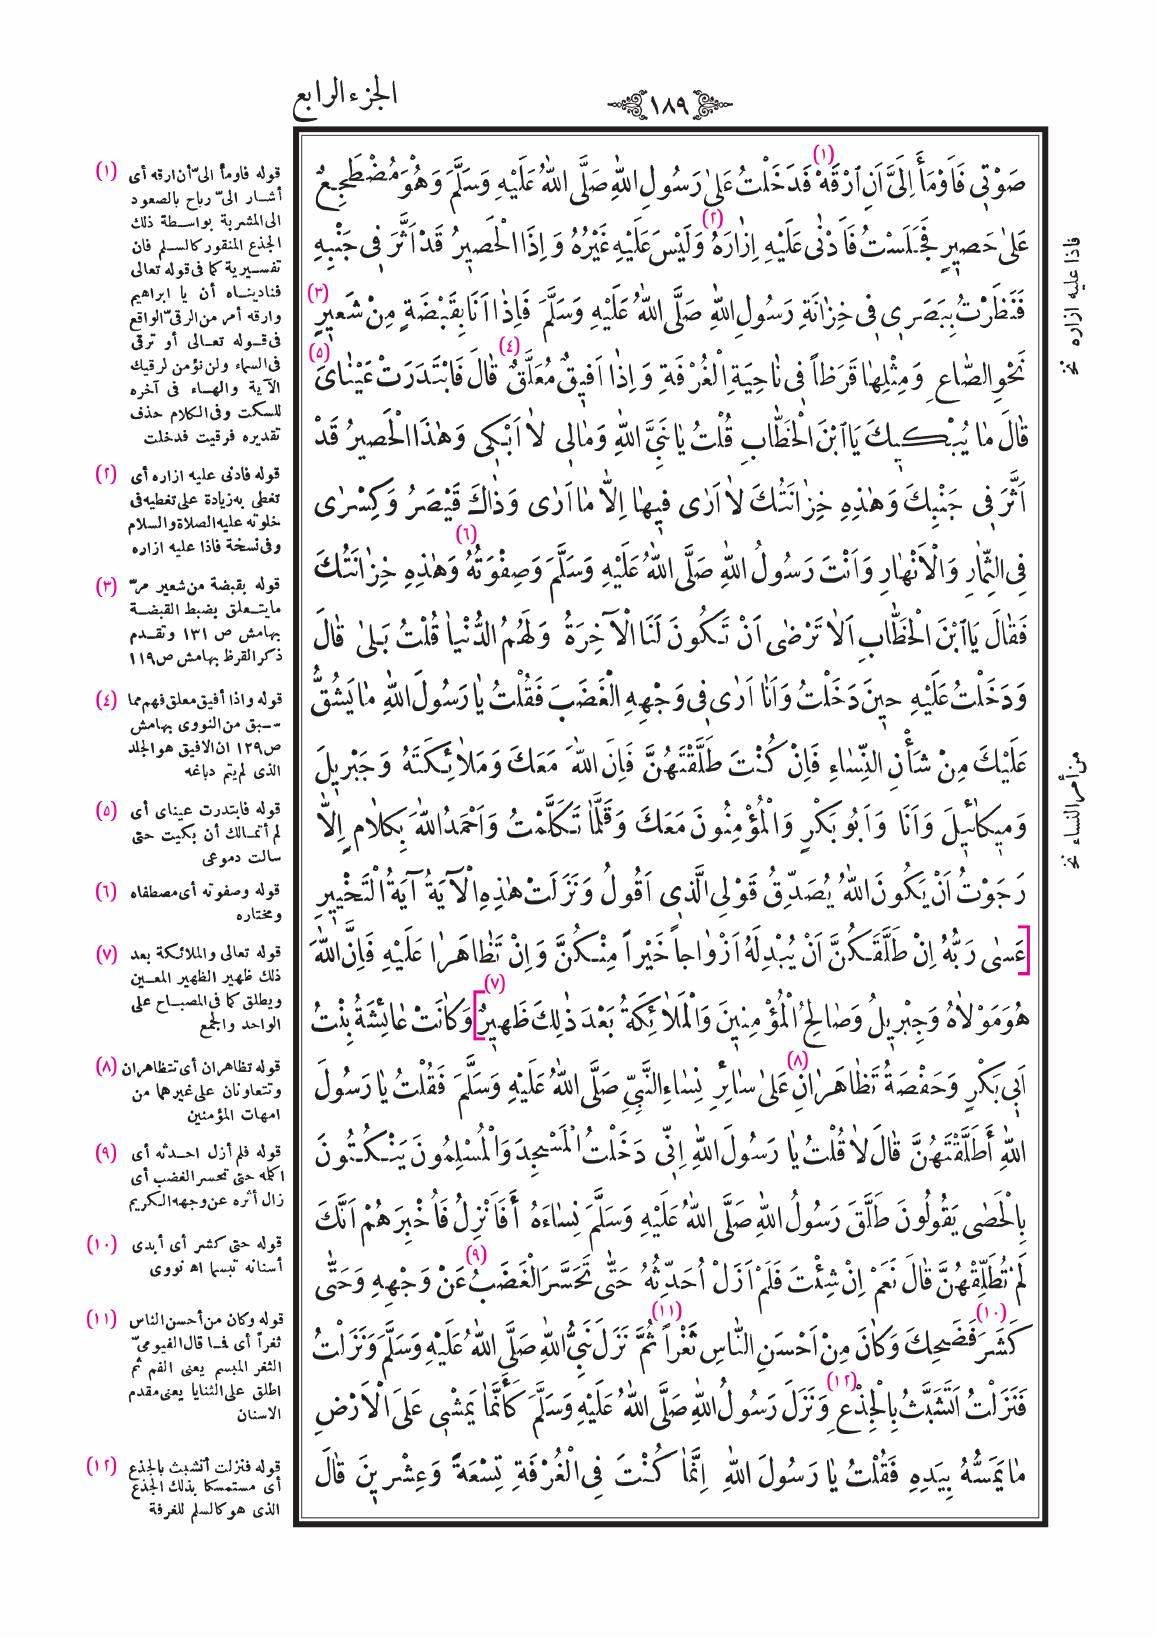 الجزء الرابع
١٨٩
صَوْتِي فَاَوْمَأَ اِلَيَّ اَنِ ارْقَهْ (١) فَدَخَلْتُ عَلىٰ رَسُولِ اللهِ صَلَّى اللهُ عَلَيْهِ وَسَلَّمَ وَهُوَ مُضْطَجِعٌ
عَلىٰ حَصِيرٍ فَجَلَسْتُ فَاَدْنٰى عَلَيْهِ اِزَارَهُ (٢) وَلَيْسَ عَلَيْهِ غَيْرُهُ وَاِذَا الْحَصِيرُ قَدْ اَثَّرَ فِي جَنْبِهِ
فَنَظَرْتُ بِبَصَرِي فِي خِزَانَةِ رَسُولِ اللهِ صَلَّى اللهُ عَلَيْهِ وَسَلَّمَ فَاِذَا اَنَا بِقَبْضَةٍ مِنْ شَعِيرٍ (٣)
نَحْوِ الصَّاعِ وَمِثْلِهَا قَرَظاً فِي نَاحِيَةِ الْغُرْفَةِ وَاِذَا اَفِيقٌ مُعَلَّقٌ (٤) قَالَ فَابْتَدَرَتْ عَيْنَايَ (٥)
قَالَ مَا يُبْكِيكَ يَا ابْنَ الْخَطَّابِ قُلْتُ يَا نَبِيَّ اللهِ وَمَالِي لاَ اَبْكِي وَهٰذَا الْحَصِيرُ قَدْ
اَثَّرَ فِي جَنْبِكَ وَهٰذِهِ خِزَانَتُكَ لاَ اَرٰى فِيهَا اِلاَّ مَا اَرٰى وَذَاكَ قَيْصَرُ وَكِسْرٰى
فِي الثِّمَارِ وَالْاَنْهَارِ وَاَنْتَ رَسُولُ اللهِ صَلَّى اللهُ عَلَيْهِ وَسَلَّمَ وَصِفْوَتُهُ (٦) وَهٰذِهِ خِزَانَتُكَ
فَقَالَ يَا ابْنَ الْخَطَّابِ اَلاَ تَرْضٰى اَنْ تَكُونَ لَنَا الْآخِرَةُ وَلَهُمُ الدُّنْيَا قُلْتُ بَلىٰ قَالَ
وَدَخَلْتُ عَلَيْهِ حِينَ دَخَلْتُ وَاَنَا اَرٰى فِي وَجْهِهِ الْغَضَبَ فَقُلْتُ يَا رَسُولَ اللهِ مَا يَشُقُّ
عَلَيْكَ مِنْ شَأْنِ النِّسَاءِ فَاِنْ كُنْتَ طَلَّقْتَهُنَّ فَاِنَّ اللهَ مَعَكَ وَمَلاَئِكَتَهُ وَجِبْرِيلَ
وَمِيكَائِيلَ وَاَنَا وَاَبُو بَكْرٍ وَالْمُؤْمِنُونَ مَعَكَ وَقَلَّمَا تَكَلَّمْتُ وَاَحْمَدُ اللهَ بِكَلاَمٍ اِلاَّ
رَجَوْتُ اَنْ يَكُونَ اللهُ يُصَدِّقُ قَوْلِي الَّذِي اَقُولُ وَنَزَلَتْ هٰذِهِ الْآيَةُ آيَةُ التَّخْيِيرِ
[عَسٰى رَبُّهُ اِنْ طَلَّقَكُنَّ اَنْ يُبْدِلَهُ اَزْوَاجاً خَيْراً مِنْكُنَّ وَاِنْ تَظَاهَرَا عَلَيْهِ فَاِنَّ اللهَ
هُوَ مَوْلاَهُ وَجِبْرِيلُ وَصَالِحُ الْمُؤْمِنِينَ وَالْمَلاَئِكَةُ بَعْدَ ذٰلِكَ ظَهِيرٌ] (٧) وَكَانَتْ عَائِشَةُ بِنْتُ
اَبِي بَكْرٍ وَحَفْصَةُ تَظَاهَرَانِ (٨) عَلىٰ سَائِرِ نِسَاءِ النَّبِيِّ صَلَّى اللهُ عَلَيْهِ وَسَلَّمَ فَقُلْتُ يَا رَسُولَ
اللهِ أَطَلَّقْتَهُنَّ قَالَ لاَ قُلْتُ يَا رَسُولَ اللهِ اِنِّي دَخَلْتُ الْمَسْجِدَ وَالْمُسْلِمُونَ يَنْكُتُونَ
بِالْحَصٰى يَقُولُونَ طَلَّقَ رَسُولُ اللهِ صَلَّى اللهُ عَلَيْهِ وَسَلَّمَ نِسَاءَهُ أَفَاَنْزِلُ فَاُخْبِرَهُمْ اَنَّكَ
لَمْ تُطَلِّقْهُنَّ قَالَ نَعَمْ اِنْ شِئْتَ فَلَمْ اَزَلْ اُحَدِّثُهُ حَتّٰى تَحَسَّرَ الْغَضَبُ (٩) عَنْ وَجْهِهِ وَحَتّٰى
كَشَرَ (١٠) فَضَحِكَ وَكَانَ مِنْ اَحْسَنِ النَّاسِ ثَغْراً (١١) ثُمَّ نَزَلَ نَبِيُّ اللهِ صَلَّى اللهُ عَلَيْهِ وَسَلَّمَ وَنَزَلْتُ
فَنَزَلْتُ اَتَشَبَّثُ بِالْجِذْعِ (١٢) وَنَزَلَ رَسُولُ اللهِ صَلَّى اللهُ عَلَيْهِ وَسَلَّمَ كَأَنَّمَا يَمْشِي عَلَى الْاَرْضِ
مَا يَمَسُّهُ بِيَدِهِ فَقُلْتُ يَا رَسُولَ اللهِ اِنَّمَا كُنْتَ فِي الْغُرْفَةِ تِسْعَةً وَعِشْرِينَ قَالَ
فاذا عليه ازاره نخ
من أمر النساء نخ
(١) قوله فاومأ الىّ أن ارقه أى
أشار الىّ رباح بالصعود
الى المشربة بواسطة ذلك
الجذع المنقور كالسلم فان
تفسيرية كما فى قوله تعالى
فناديناه أن يا ابراهيم
وارقه أمر من الرقىّ الواقع
فى قوله تعالى أو ترقى
فى السماء ولن نؤمن لرقيك
الآية والهاء فى آخره
للسكت وفى الكلام حذف
تقديره فرقيت فدخلت
(٢) قوله فادنى عليه ازاره أى
تغطى به زيادة على تغطيه فى
خلوته عليه الصلاة والسلام
وفى نسخة فاذا عليه ازاره
(٣) قوله بقبضة من شعير مرّ
ما يتعلق بضبط القبضة
بهامش ص ١٣١ وتقدم
ذكر القرظ بهامش ص١١٩
(٤) قوله واذا أفيق معلق فهم مما
سبق من النووى بهامش
ص١٢٩ ان الافيق هو الجلد
الذى لم يتم دباغه
(٥) قوله فابتدرت عيناى أى
لم أتمالك أن بكيت حتى
سالت دموعى
(٦) قوله وصفوته أى مصطفاه
ومختاره
(٧) قوله تعالى والملائكة بعد
ذلك ظهير الظهير المعين
ويطلق كما فى المصباح على
الواحد والجمع
(٨) قوله تظاهران أى تتظاهران
وتتعاونان على غيرهما من
امهات المؤمنين
(٩) قوله فلم أزل احدثه أى
اكلمه حتى تحسر الغضب أى
زال أثره عن وجهه الكريم
(١٠) قوله حتى كشر أى أبدى
أسنانه تبسما اه نووى
(١١) قوله وكان من أحسن الناس
ثغراً أى فما قال الفيومىّ
الثغر المبسم يعنى الفم ثم
اطلق على الثنايا يعنى مقدم
الاسنان
(١٢) قوله فنزلت أتشبث بالجذع
أى مستمسكا بذلك الجذع
الذى هو كالسلم للغرفة